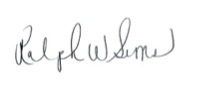 Ralph W Sims